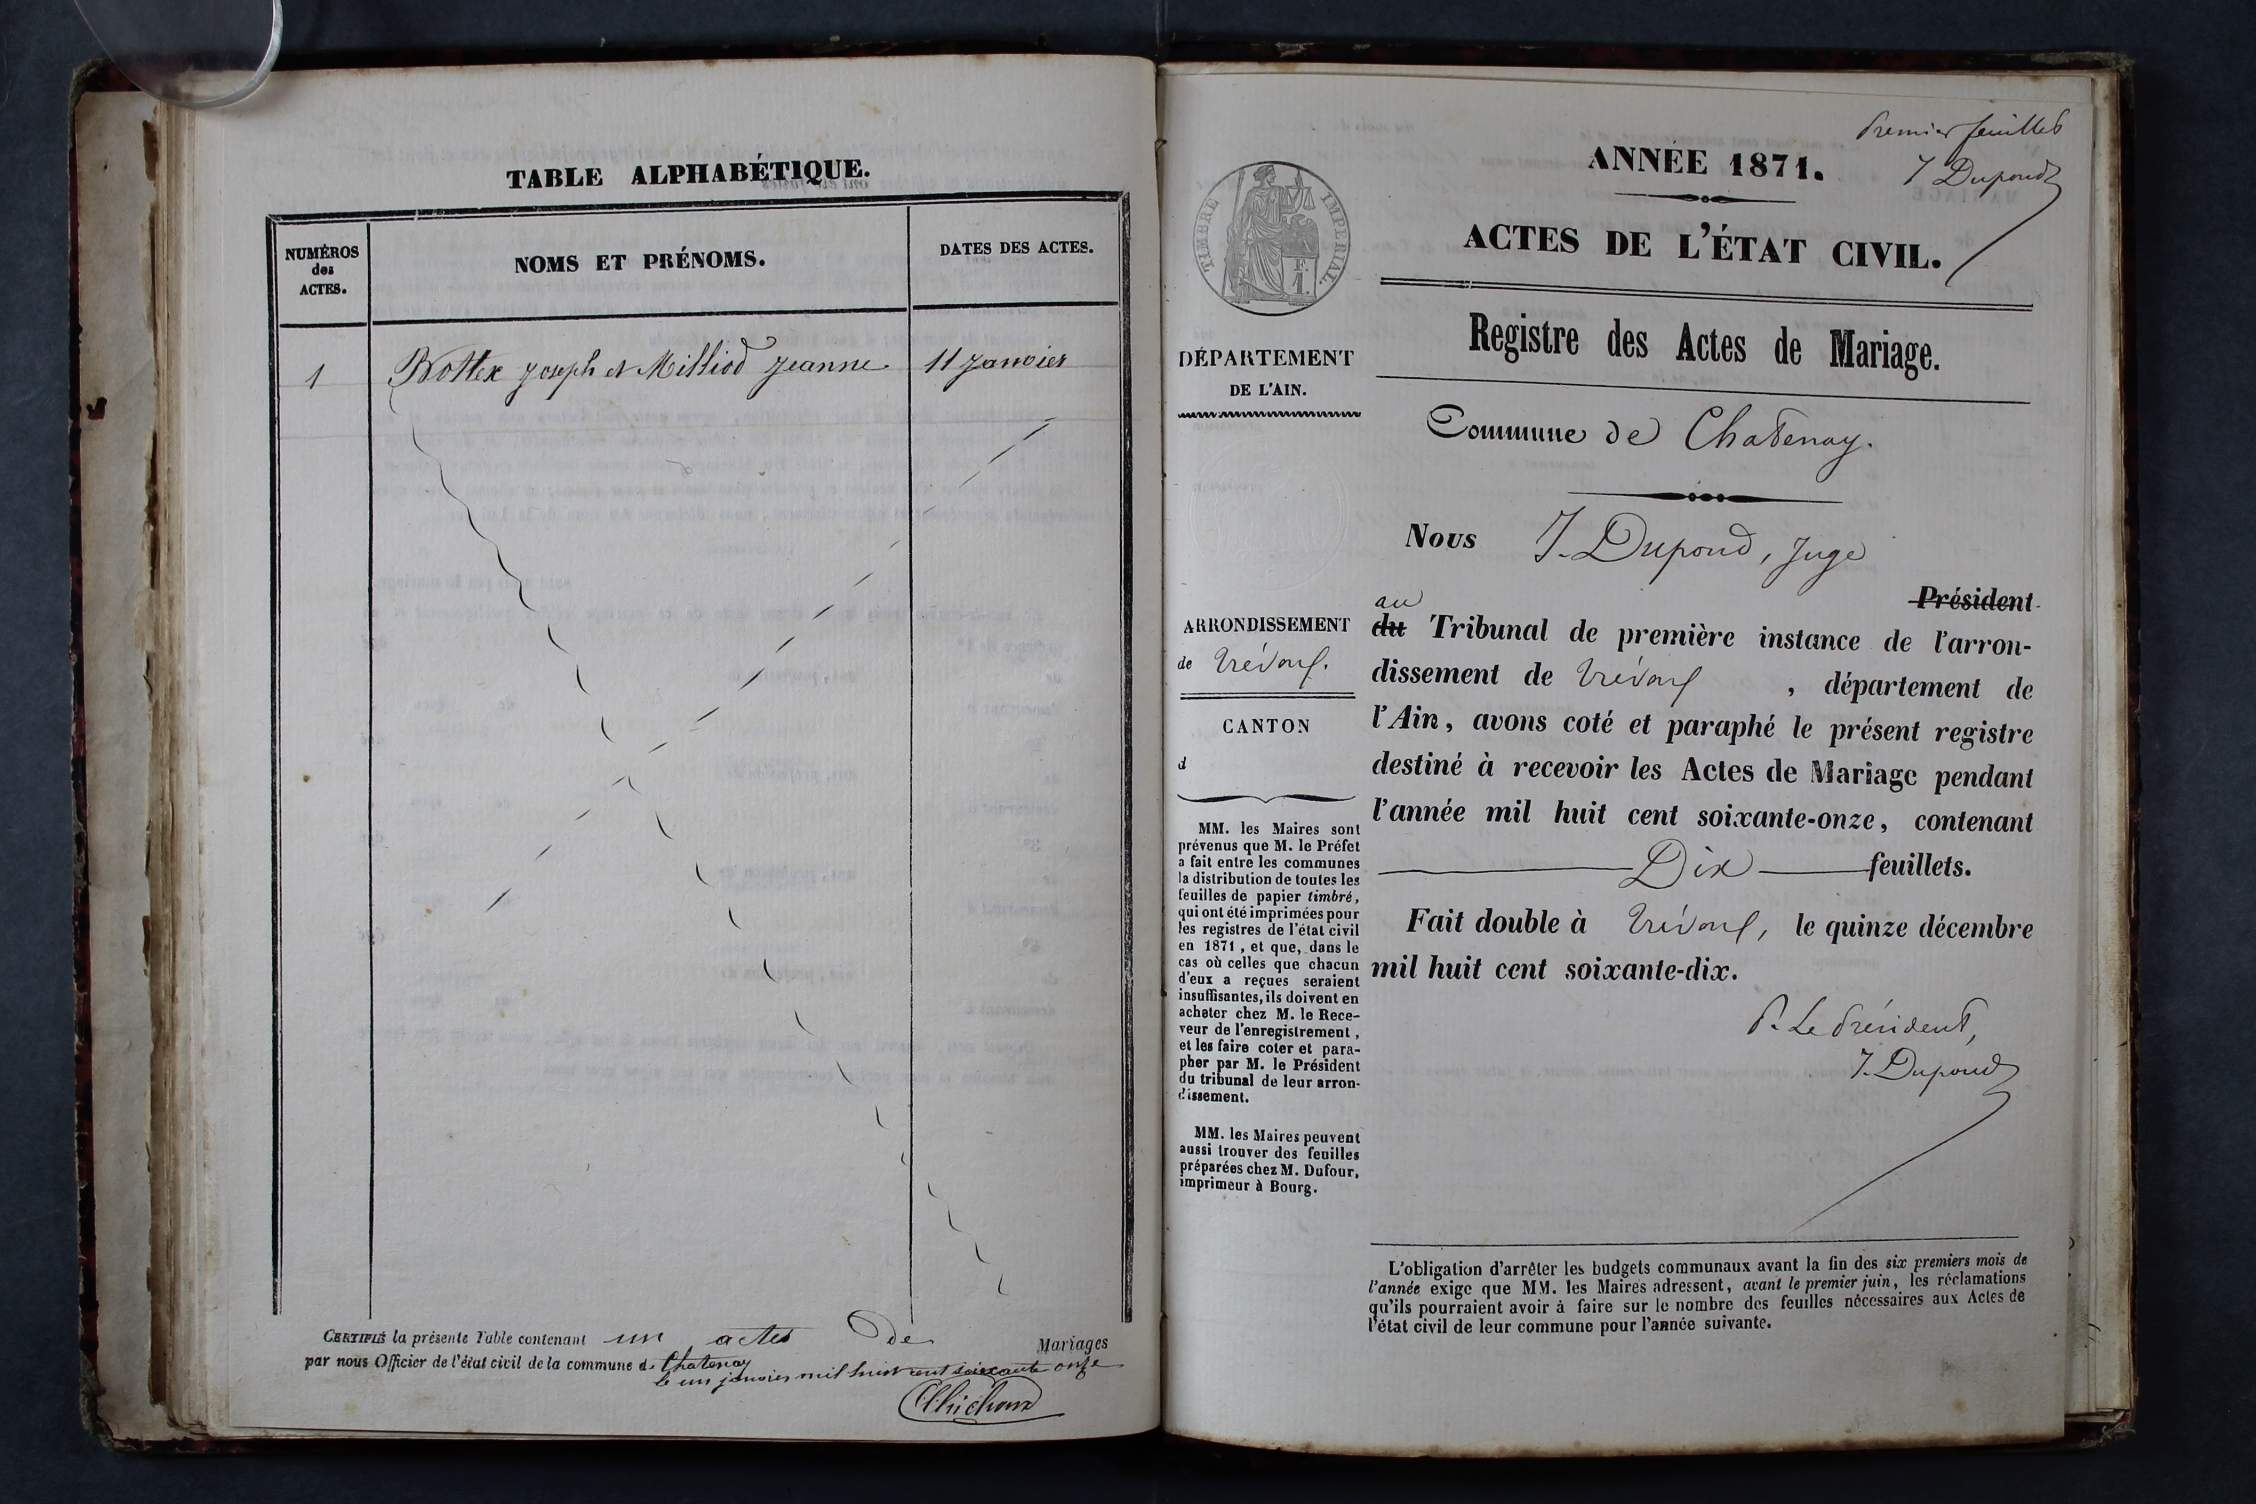 TABLE ALPHABÉTIQUE.
NUMÉROS
des
ACTES.
NOMS ET PRÉNOMS.
DATES DES ACTES.
1
Bottex Joseph et Milliod Jeanne
11 Janvier
CERTIFIÉ la présente Table contenant un actes de Mariages
par nous Officier de l'état civil de la commune de Chatenay
le un janvier mil huit cent soixante onze
Premier feuillet
J Dupond
ANNÉE 1871.
ACTES DE L'ÉTAT CIVIL.
TIMBRE IMPÉRIAL.
F.
1.
DÉPARTEMENT
DE L'AIN.
ARRONDISSEMENT
de Trévoux.
CANTON
d
MM. les Maires sont
prévenus que M. le Préfet
a fait entre les communes
la distribution de toutes les
feuilles de papier timbré,
qui ont été imprimées pour
les registres de l'état civil
en 1871, et que, dans le
cas où celles que chacun
d'eux a reçues seraient
insuffisantes, ils doivent en
acheter chez M. le Rece-
veur de l'enregistrement,
et les faire coter et para-
pher par M. le Président
du tribunal de leur arron-
dissement.
MM. les Maires peuvent
aussi trouver des feuilles
préparées chez M. Dufour,
imprimeur à Bourg.
Registre des Actes de Mariage.
Commune de Chatenay.
Nous J. Dupond, Juge
Président
au
du Tribunal de première instance de l'arron-
dissement de Trévoux, département de
l'Ain, avons coté et paraphé le présent registre
destiné à recevoir les Actes de Mariage pendant
l'année mil huit cent soixante-onze, contenant
Dix feuillets.
Fait double à Trévoux, le quinze décembre
mil huit cent soixante-dix.
P. Le Président,
J. Dupond
L'obligation d'arrêter les budgets communaux avant la fin des six premiers mois de
l'année exige que MM. les Maires adressent, avant le premier juin, les réclamations
qu'ils pourraient avoir à faire sur le nombre des feuilles nécessaires aux Actes de
l'état civil de leur commune pour l'année suivante.